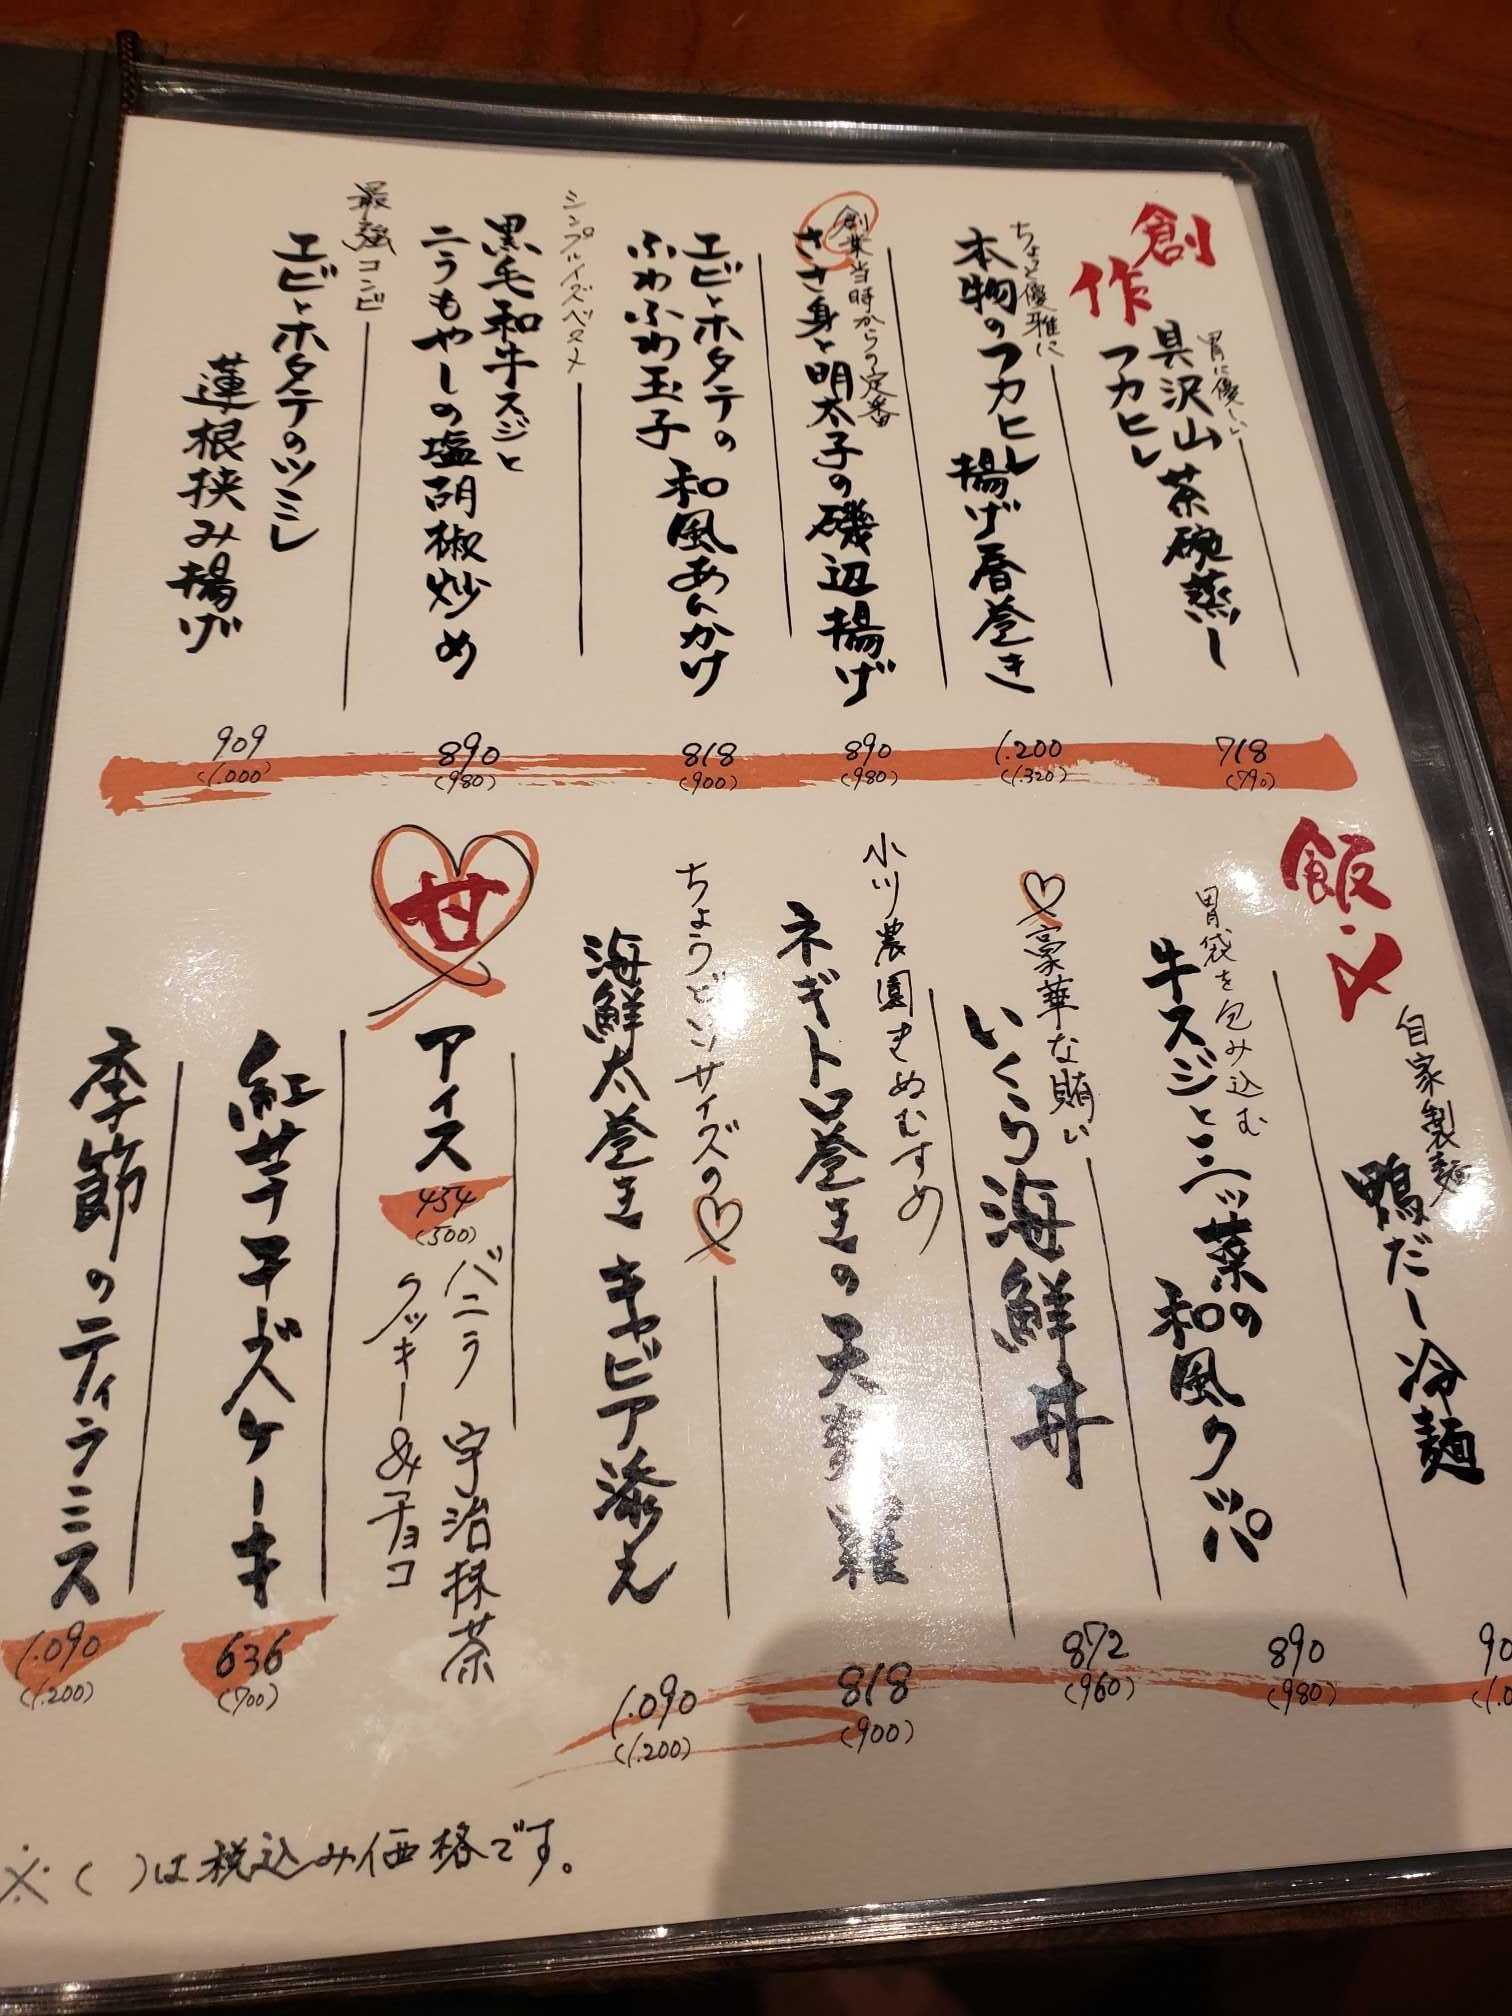 創作
胃に優しい
具沢山茶碗蒸し
フカヒレ
718
(790)
ちょっと優雅に
本物のフカヒレ揚げ春巻き
1.200
(1.320)
創業当時からの定番
ささ身と明太子の磯辺揚げ
890
(980)
エビとホタテの
ふわふわ玉子
和風あんかけ
818
(900)
シンプルイズベスト
黒毛和牛スジと
こうもやしの塩胡椒炒め
890
(980)
最強コンビ
エビとホタテのツミレ
蓮根挟み揚げ
909
(1.000)
飯・〆
自家製麺
鴨だし冷麺
90
(1.0
胃袋を包み込む
牛スジと三ッ葉の
和風クッパ
890
(980)
豪華な賄い
いくら海鮮丼
872
(960)
小川農園きぬむすめ
ネギトロ巻きの天麩羅
818
(900)
ちょうどいいサイズの
海鮮太巻き キャビア添え
1.090
(1.200)
甘
アイス
454
(500)
バニラ 宇治抹茶
クッキー&チョコ
紅芋チーズケーキ
636
(700)
季節のティラミス
1.090
(1.200)
※( )は税込み価格です。